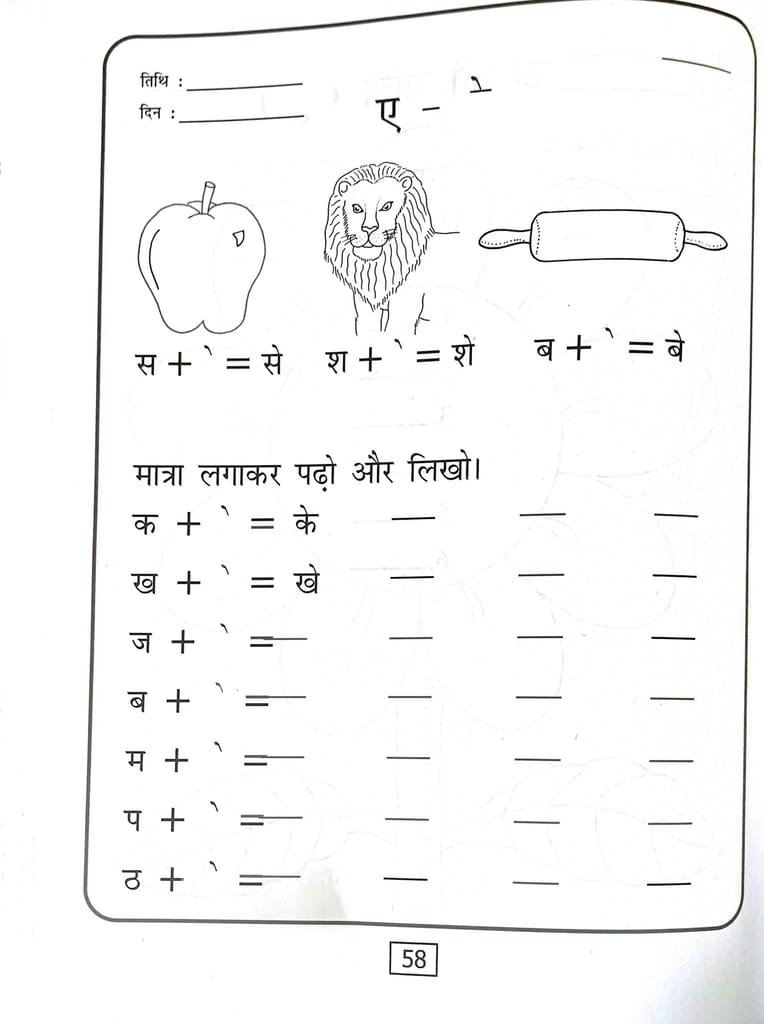 तिथि : ____________
दिन : ____________
ए - े
स + े = से श + े = शे ब + े = बे
मात्रा लगाकर पढ़ो और लिखो।
क + े = के ___ ___ ___
ख + े = खे ___ ___ ___
ज + े = ___ ___ ___ ___
ब + े = ___ ___ ___ ___
म + े = ___ ___ ___ ___
प + े = ___ ___ ___ ___
ठ + े = ___ ___ ___ ___
58